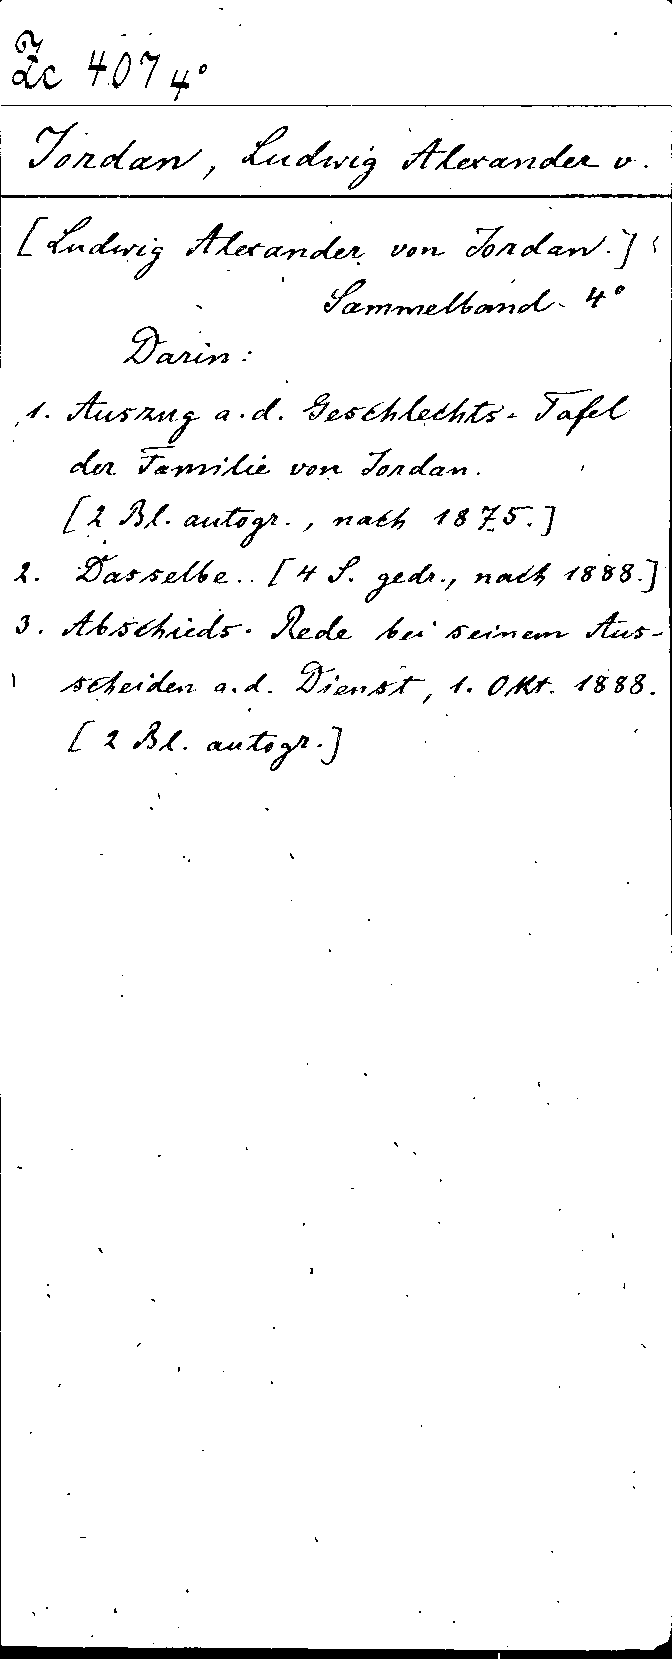 Zc 407 4°
Jordan, Ludwig Alexander v.
[Ludwig Alexander von Jordan.]
Sammelband. 4°
Darin:
1. Auszug a. d. Geschlechts-Tafel
der Familie von Jordan.
[2 Bl. autogr., nach 1875.]
2. Dasselbe.. [4 S. gedr., nach 1888.]
3. Abschieds-Rede bei seinem Aus-
scheiden a. d. Dienst, 1. Okt. 1888.
[2 Bl. autogr.]